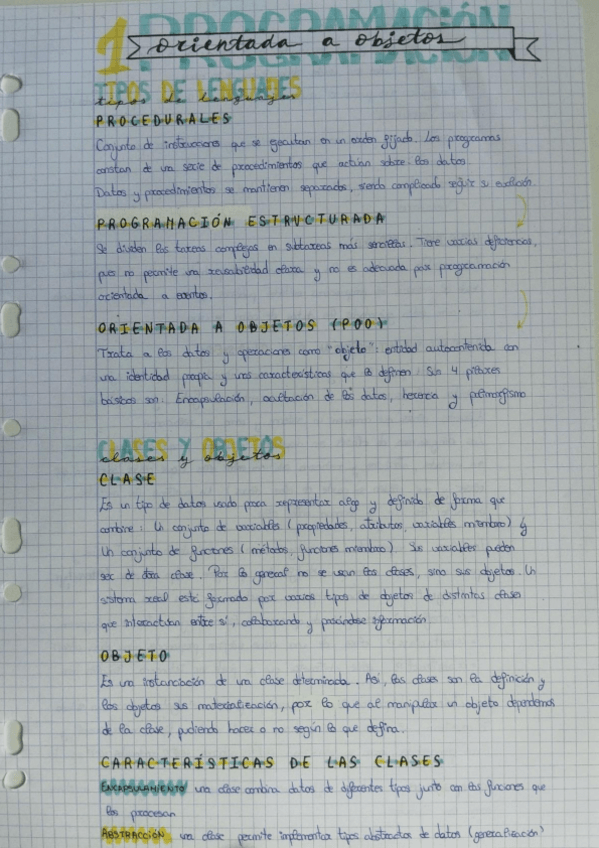 1 PROGRAMACIÓN
orientada a objetos
TIPOS DE LENGUAJES
tipos de lenguajes
PROCEDURALES
Conjunto de instrucciones que se ejecutan en un orden fijado. Los programas
constan de una serie de procedimientos que actúan sobre los datos
Datos y procedimientos se mantienen separados, siendo complicado seguir su evolución
PROGRAMACIÓN ESTRUCTURADA
Se dividen las tareas complejas en subtareas más sencillas. Tiene varias deficiencias,
pues no permite una reusabilidad clara y no es adecuada para programación
orientada a eventos.
ORIENTADA A OBJETOS (POO)
Trata a los datos y operaciones como "objeto": entidad autocontenida con
una identidad propia y unas características que lo definen. Sus 4 pilares
básicos son: Encapsulación, ocultación de los datos, herencia y polimorfismo
CLASES Y OBJETOS
clases y objetos
CLASE
Es un tipo de datos usado para representar algo y definido de forma que
combine: Un conjunto de variables (propiedades, atributos, variables miembro) y
Un conjunto de funciones (métodos, funciones miembro). Sus variables pueden
ser de otra clase. Por lo general no se usan las clases, sino sus objetos. Un
sistema real esté formado por varios tipos de objetos de distintas clases
que interactúan entre sí, colaborando y pidiéndose información.
OBJETO
Es una instanciación de una clase determinada. Así, las clases son la definición y
los objetos sus materialización, por lo que al manipular un objeto dependemos
de la clase, pudiendo hacer o no según lo que defina.
CARACTERÍSTICAS DE LAS CLASES
ENCAPSULAMIENTO una clase combina datos de diferentes tipos junto con las funciones que
los procesan
ABSTRACCIÓN una clase permite implementar tipos abstractos de datos (generalización)